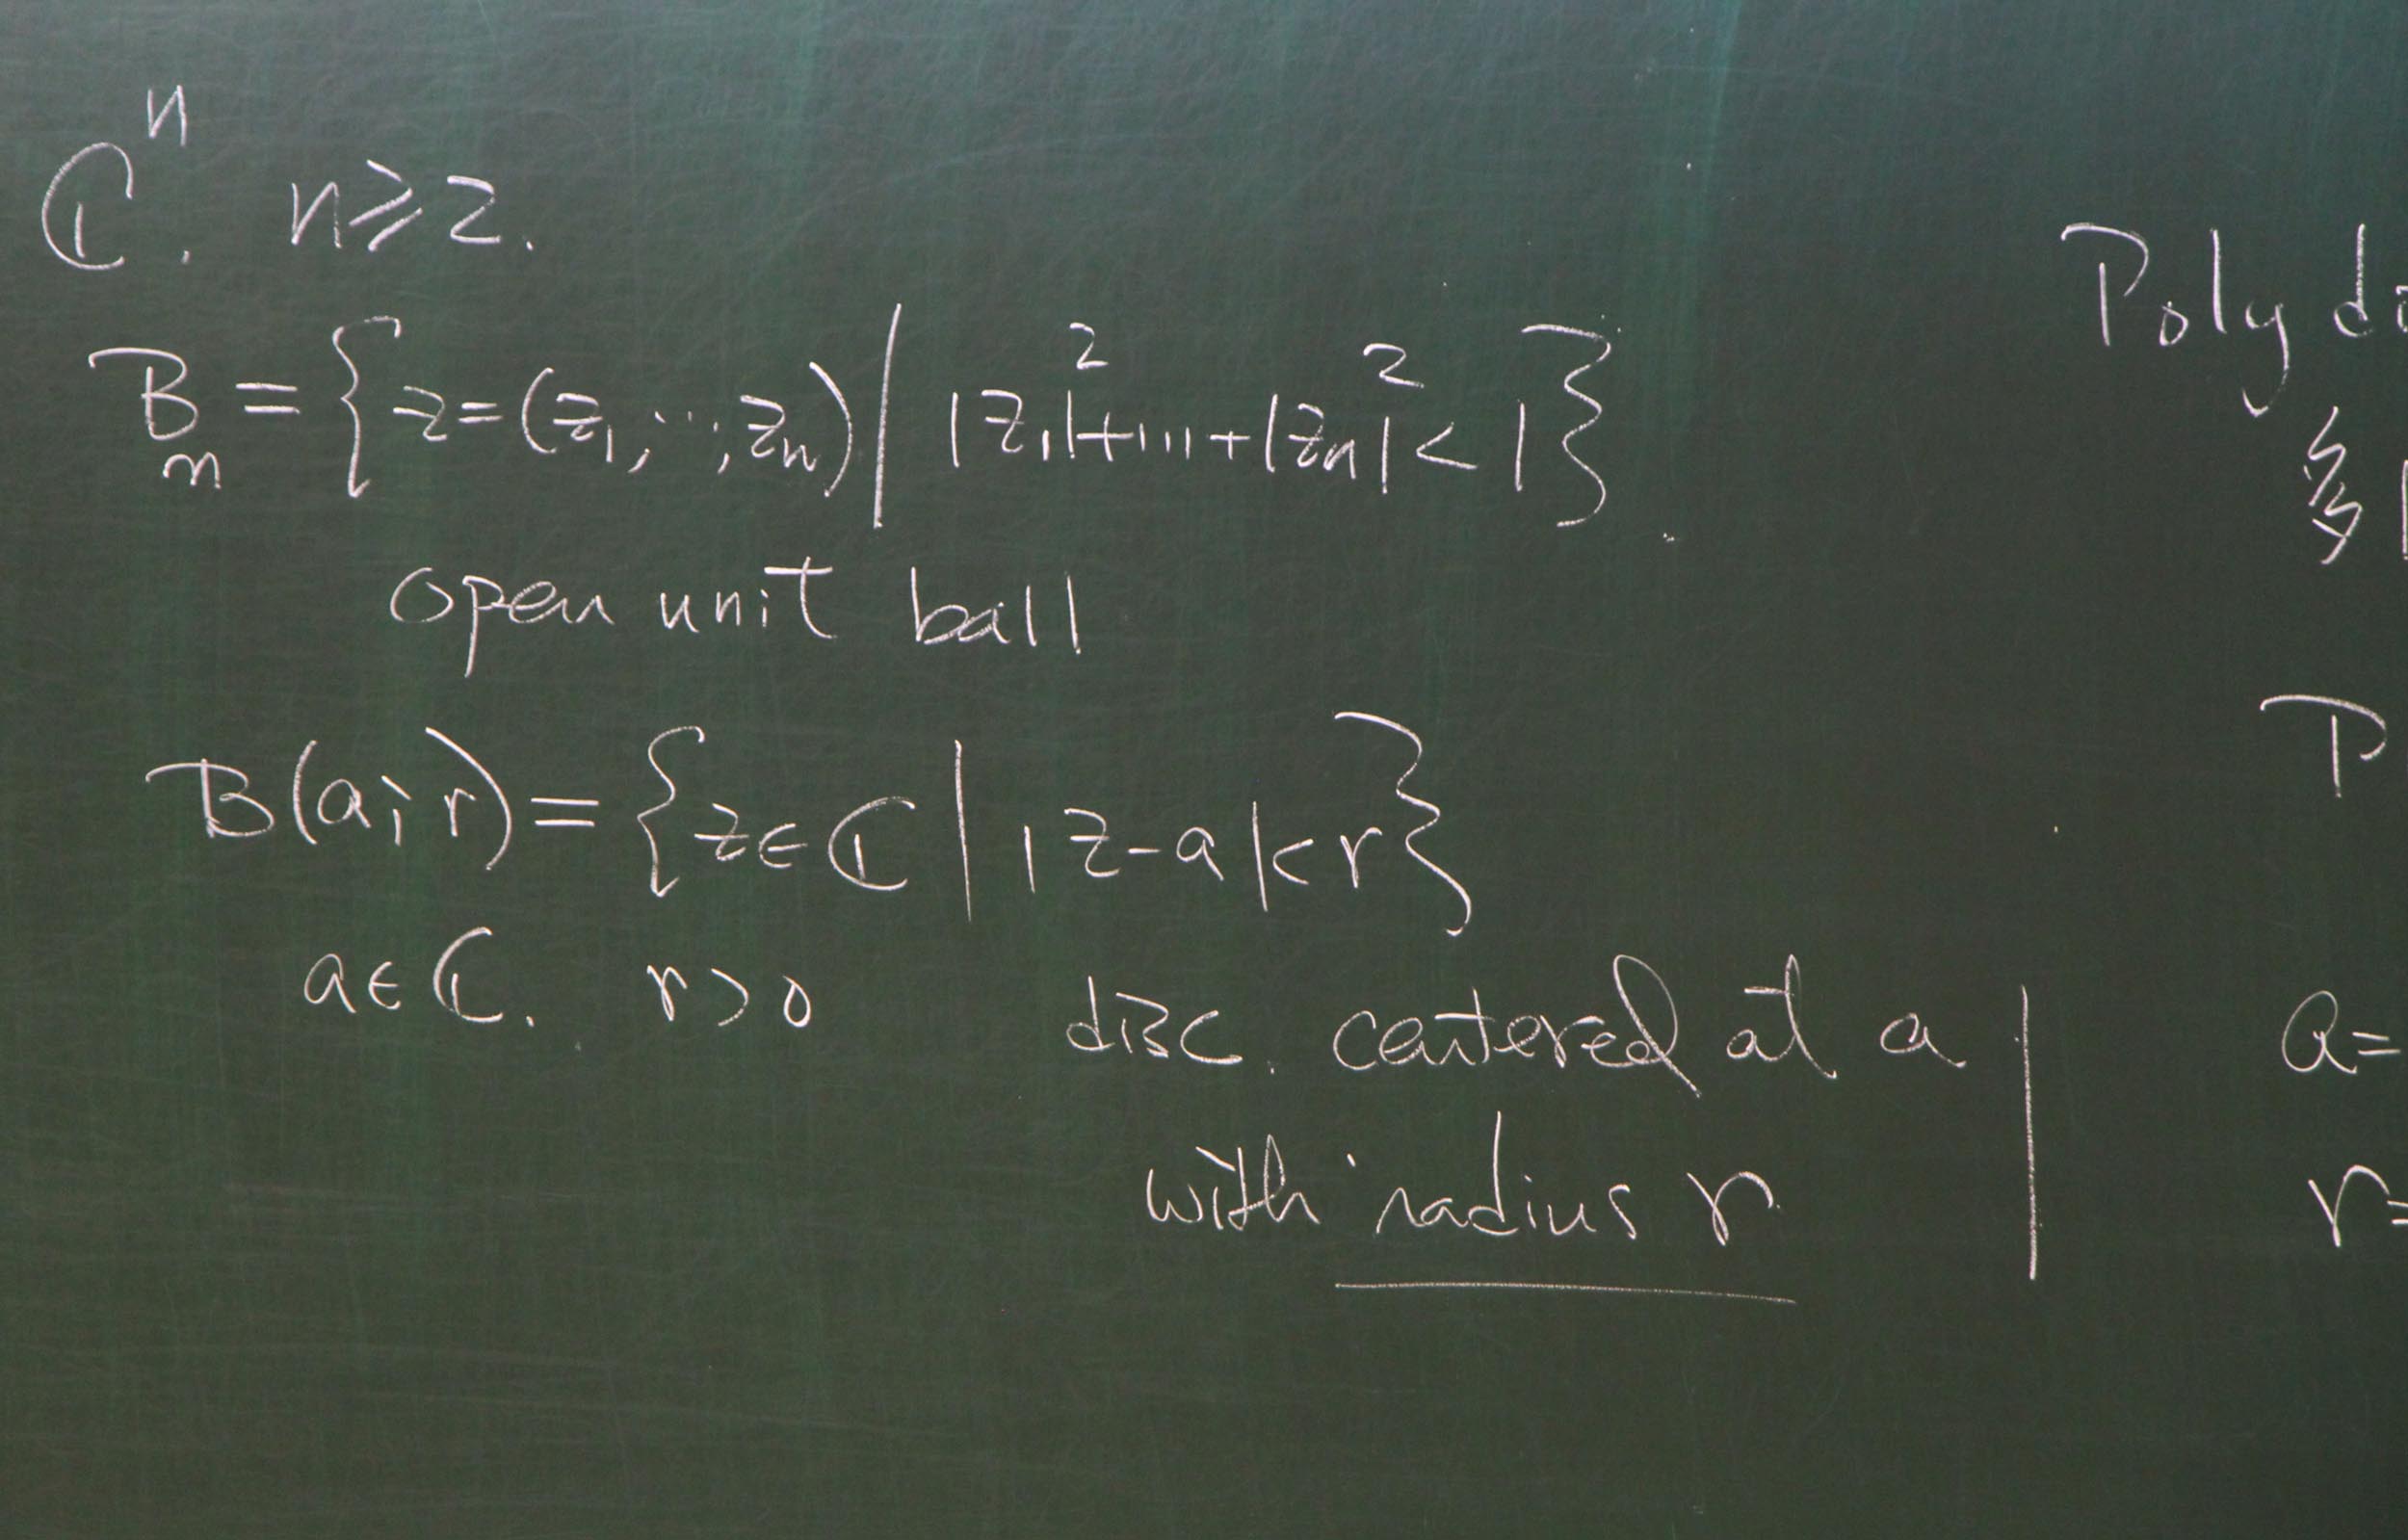 ℂⁿ. n⩾2.
Bₙ = { z=(z₁,…,zₙ) | |z₁|²+…+|zₙ|² < 1 }
open unit ball
B(a;r) = { z∈ℂ | |z-a|<r }
a∈ℂ. r>0
disc. centered at a
with radius r
Poly di
多
P
a=
r=